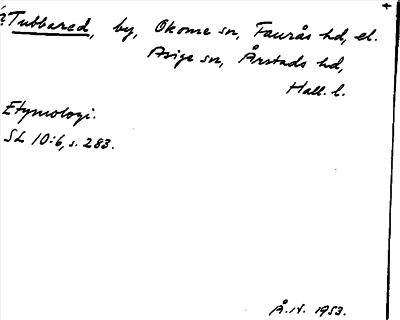 ? Tubbared, by, Okome sn, Faurås hd, el.
Asige sn, Årstads hd,
Hall. l.
Etymologi.
SL 10:6, s. 283.
Å.N. 1953.